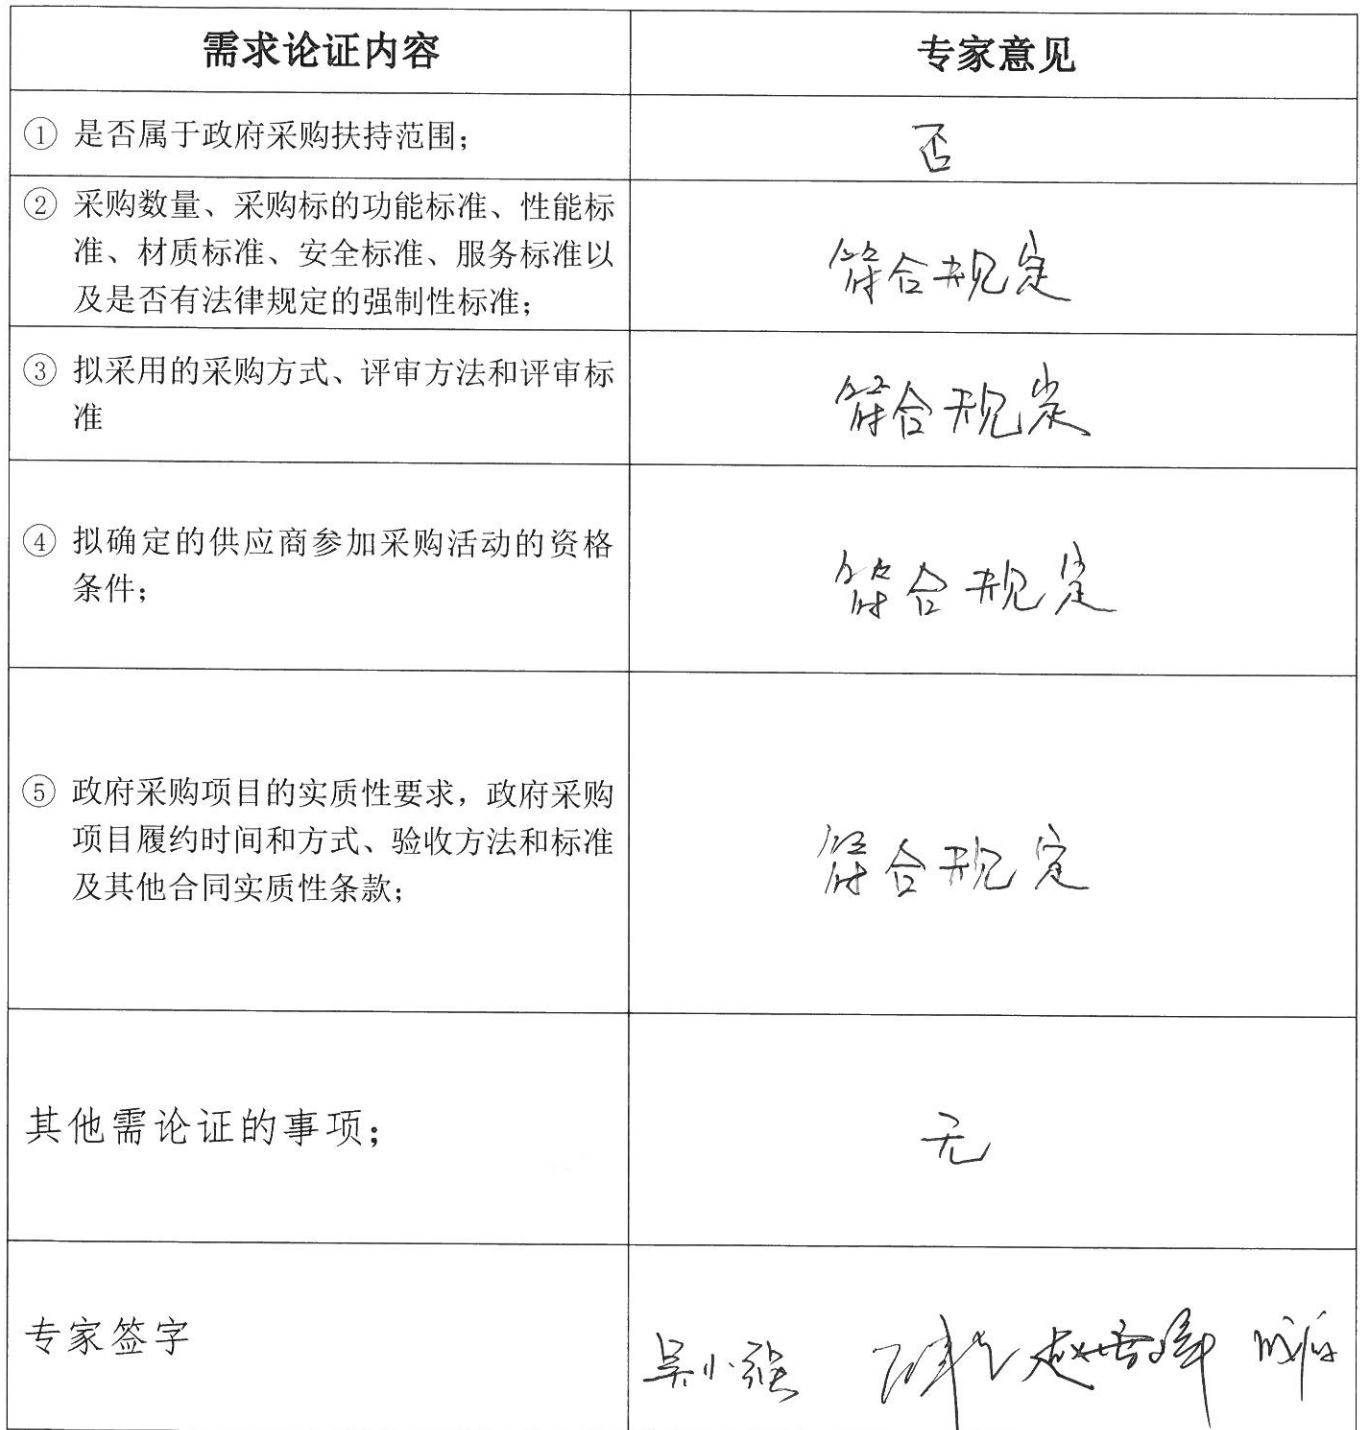 需求论证内容
专家意见
① 是否属于政府采购扶持范围；
否
② 采购数量、采购标的功能标准、性能标
准、材质标准、安全标准、服务标准以
及是否有法律规定的强制性标准；
符合规定
③ 拟采用的采购方式、评审方法和评审标
准
符合规定
④ 拟确定的供应商参加采购活动的资格
条件；
符合规定
⑤ 政府采购项目的实质性要求，政府采购
项目履约时间和方式、验收方法和标准
及其他合同实质性条款；
符合规定
其他需论证的事项；
无
专家签字
吴小强